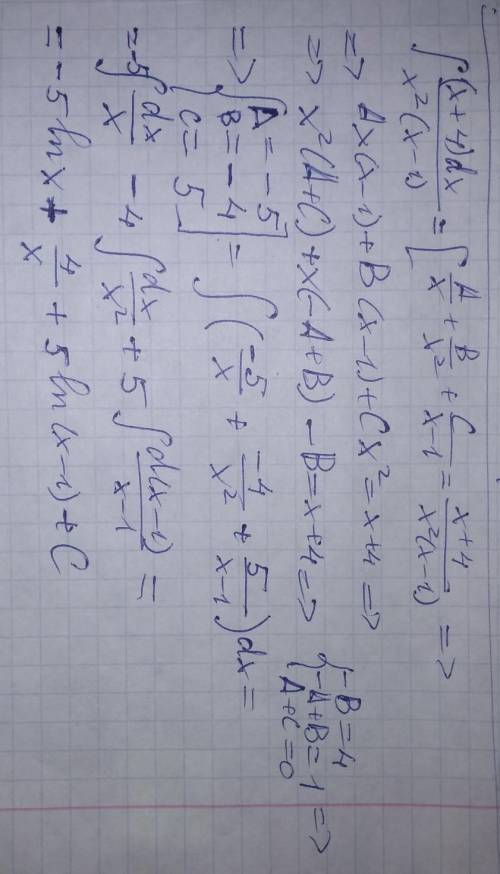 ∫ (x+4)dx / x²(x-1) = [ A/x + B/x² + C/x-1 = x+4 / x²(x-1) =>
=> Ax(x-1) + B(x-1) + Cx² = x+4 =>
=> x²(A+C) + x(-A+B) - B = x+4 => { -B = 4
-A+B = 1 =>
A+C = 0
=> { A = -5
B = -4
C = 5 ] = ∫ ( -5/x + -4/x² + 5/x-1 ) dx =
= -5 ∫ dx/x - 4 ∫ dx/x² + 5 ∫ d(x-1)/x-1 =
= -5 ln x + 4/x + 5 ln(x-1) + C